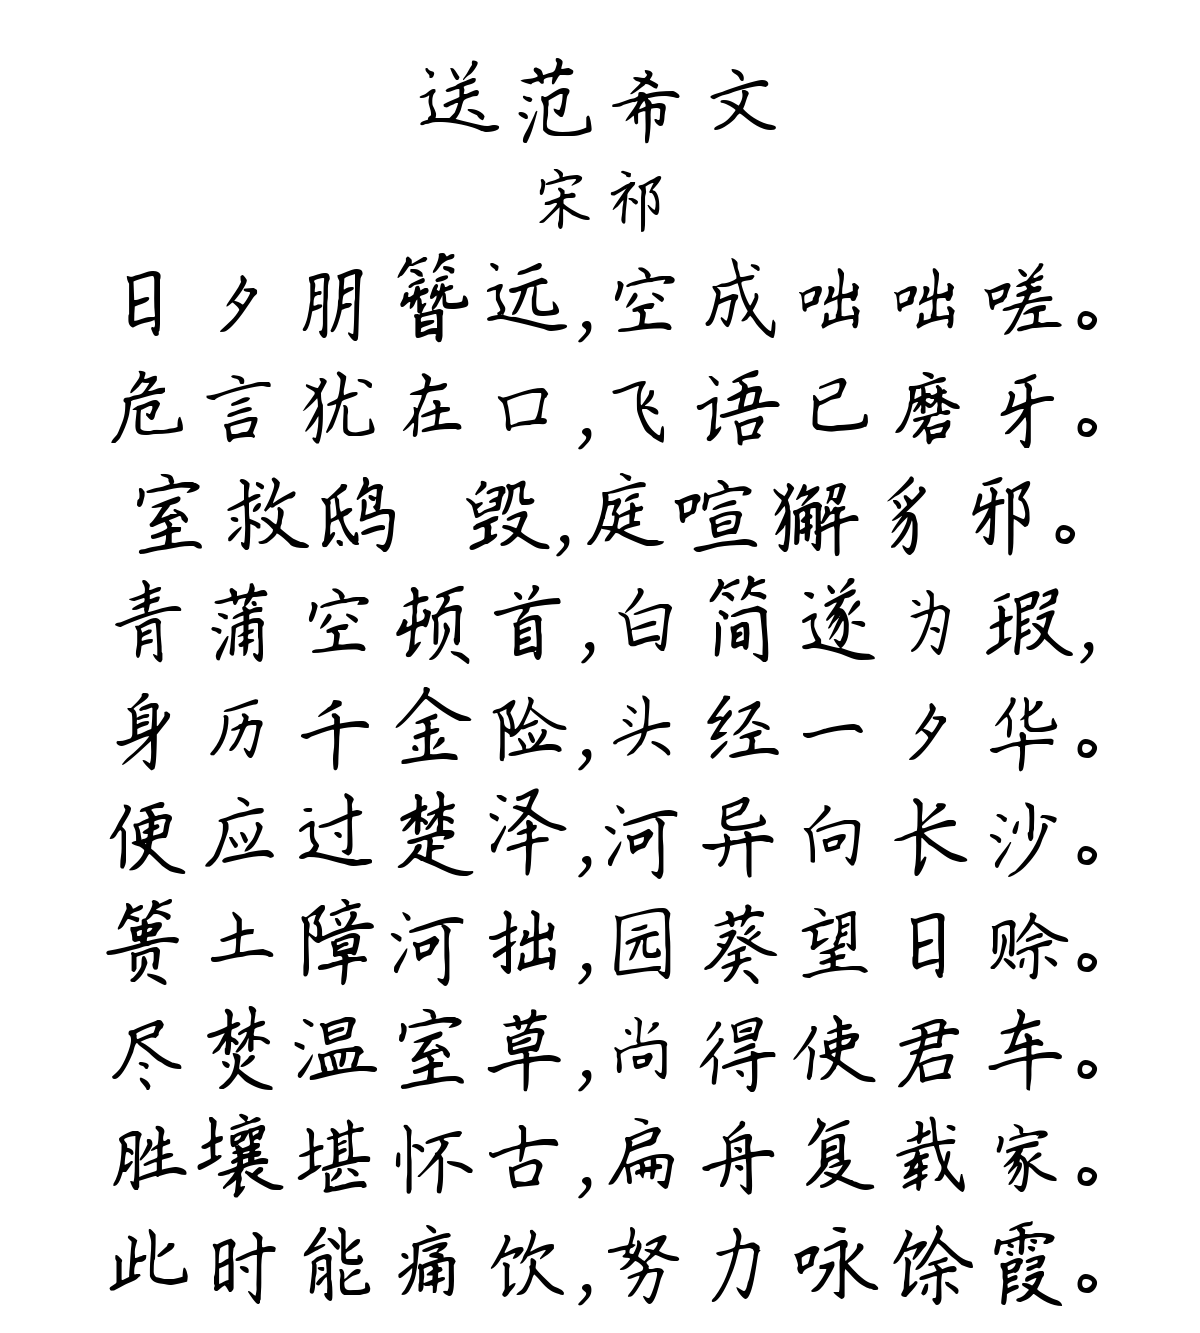 送范希文
宋祁
日夕朋簪远,空成咄咄嗟。
危言犹在口,飞语已磨牙。
室救鸱 毁,庭喧獬豸邪。
青蒲空顿首,白简遂为瑕,
身历千金险,头经一夕华。
便应过楚泽,河异向长沙。
篑土障河拙,园葵望日赊。
尽焚温室草,尚得使君车。
胜壤堪怀古,扁舟复载家。
此时能痛饮,努力咏馀霞。